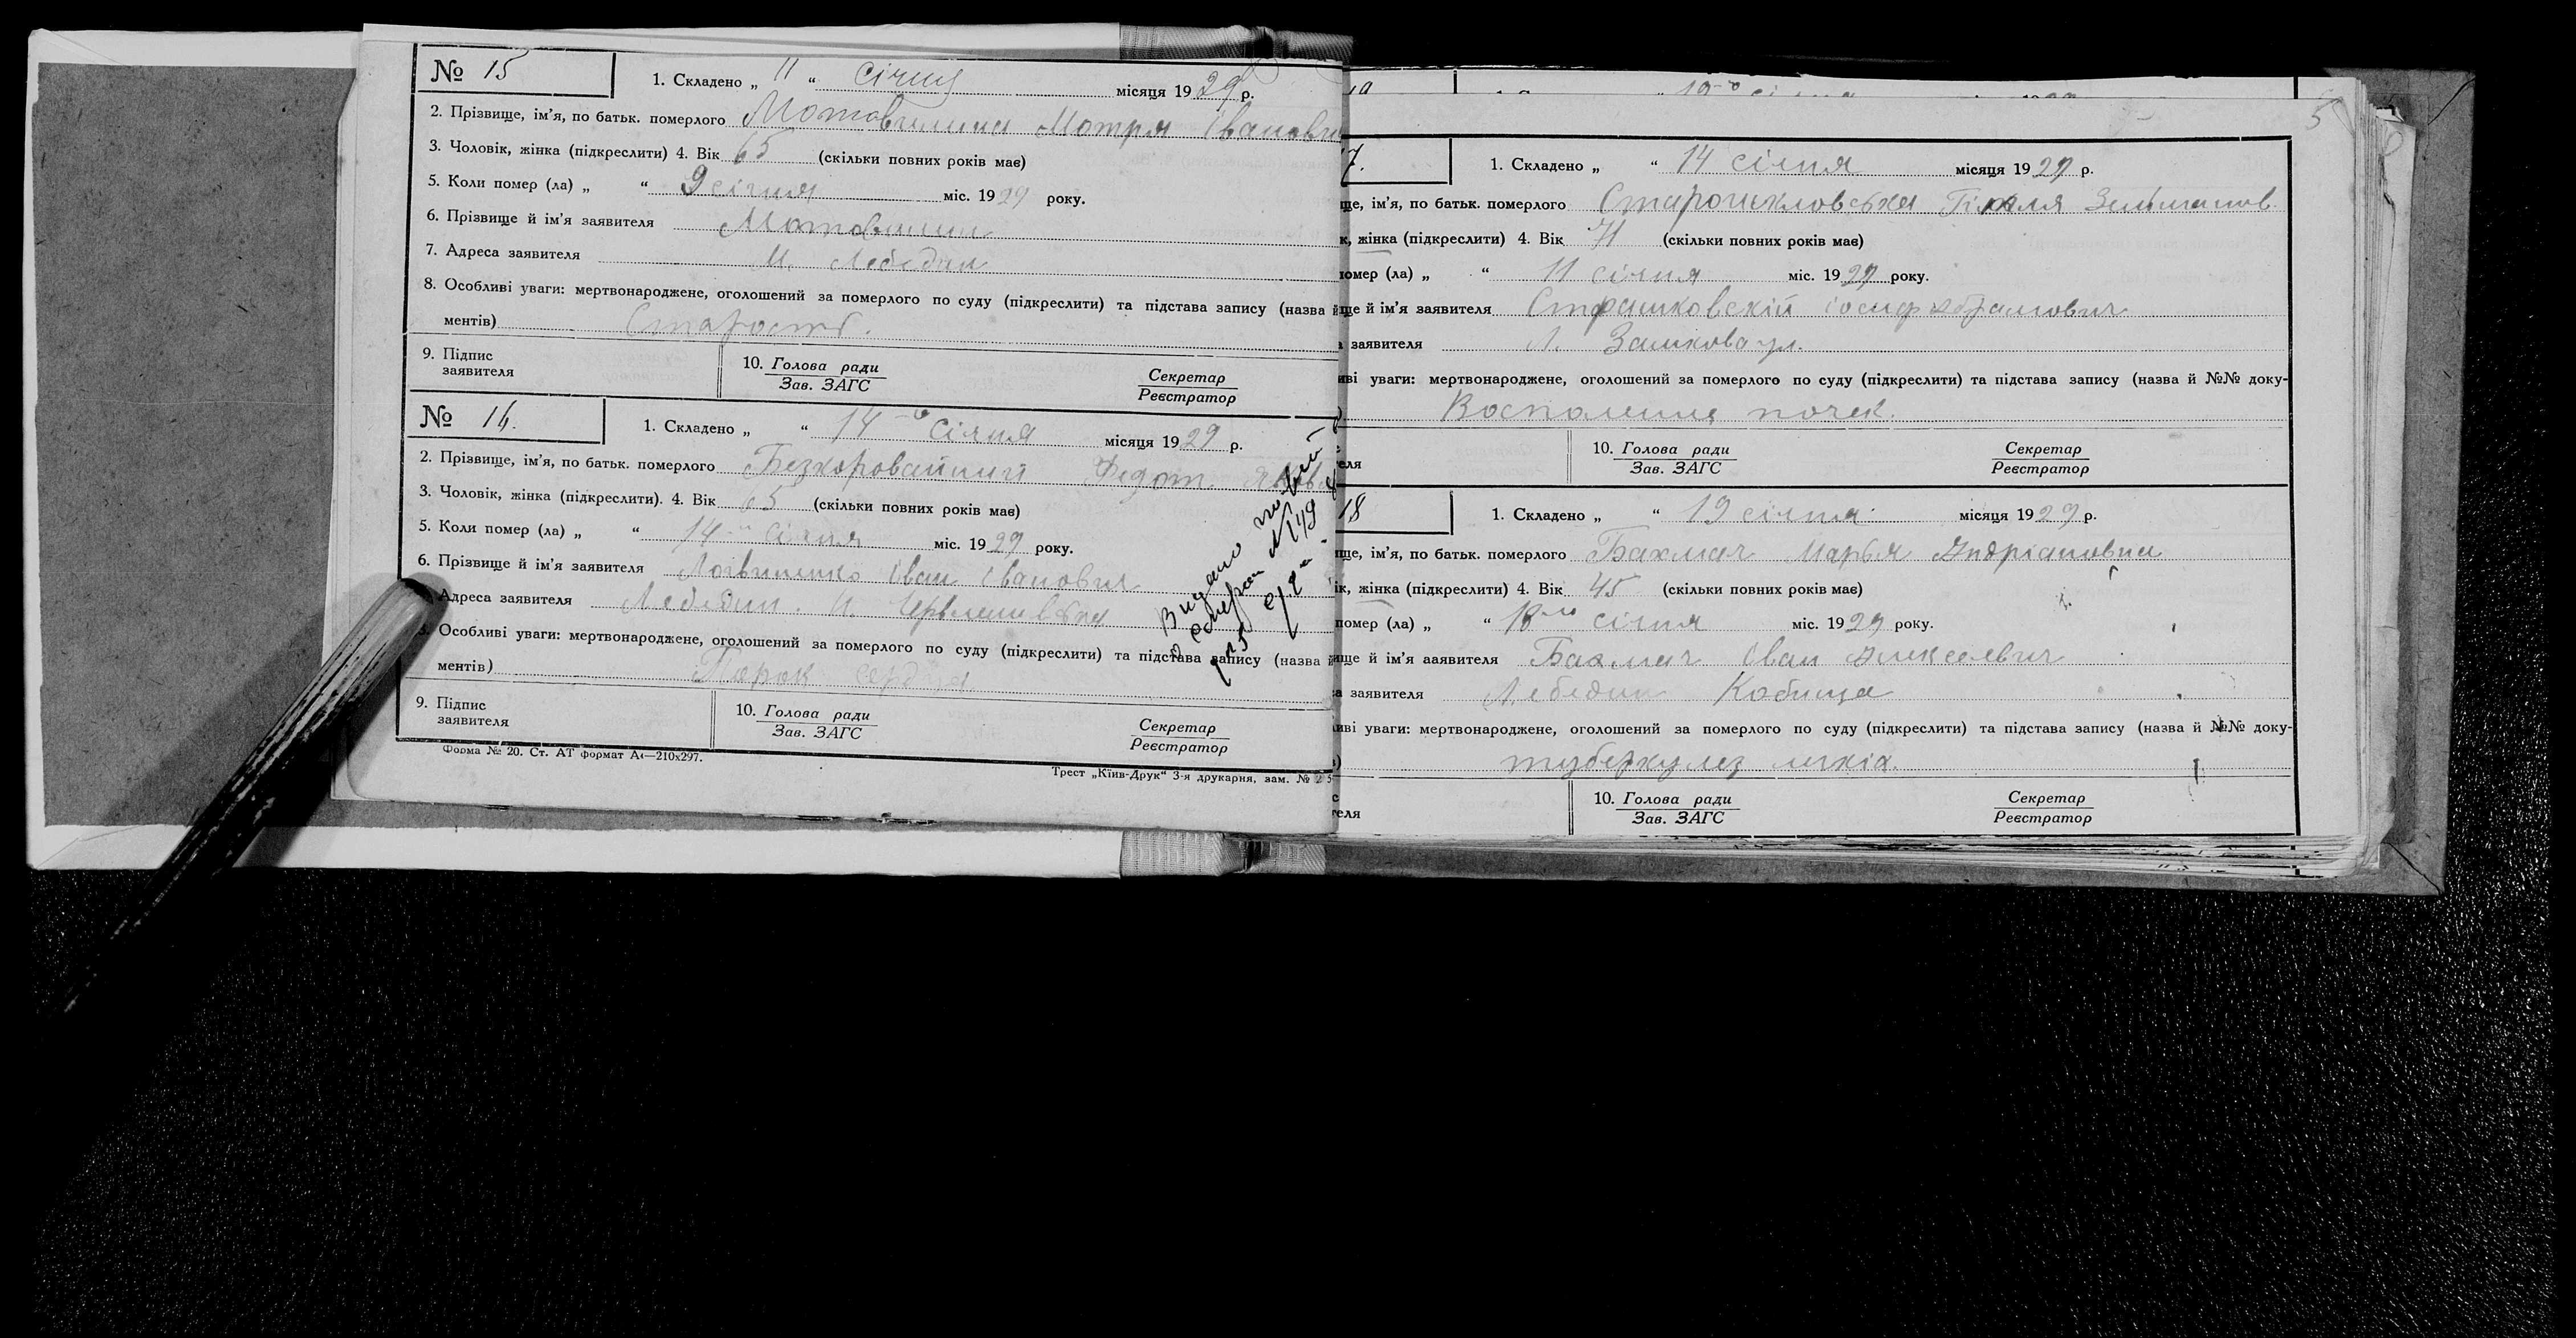 № 15
1. Складено „ 11 “ січня місяця 1929 р.
2. Прізвище, ім'я, по батьк. померлого Мотря
3. Чоловік, жінка (підкреслити) 4. Вік 65 (скільки повних років має)
5. Коли помер (ла) „ “ 9 січня міс. 1929 року.
6. Прізвище й ім'я заявителя
7. Адреса заявителя М. Лебедин
8. Особливі уваги: мертвонароджене, оголошений за померлого по суду (підкреслити) та підстава запису (назва й
ментів) Старость.
9. Підпис
заявителя
10. Голова ради
Зав. ЗАГС
Секретар
Реєстратор
№ 16.
1. Складено „ “ 14-го січня місяця 1929 р.
2. Прізвище, ім'я, по батьк. померлого Безкоровайний Федот
3. Чоловік, жінка (підкреслити). 4. Вік 65 (скільки повних років має)
5. Коли помер (ла) „ “ 14 січня міс. 1929 року.
6. Прізвище й ім'я заявителя Логвиненко Іван Іванович
Адреса заявителя Лебедин.
Особливі уваги: мертвонароджене, оголошений за померлого по суду (підкреслити) та підстава запису (назва й
ментів) Порок сердца
9. Підпис
заявителя
10. Голова ради
Зав. ЗАГС
Секретар
Реєстратор
Форма № 20. Ст. АТ формат А4—210x297.
Трест „Київ-Друк“ 3-я друкарня, зам. №
Видано
5
7.
1. Складено „ “ 14 січня місяця 1929 р.
ще, ім'я, по батьк. померлого
к, жінка (підкреслити) 4. Вік 71 (скільки повних років має)
помер (ла) „ “ 11 січня міс. 1929 року.
ще й ім'я заявителя Страшковскій Іосиф Абрамович
заявителя Л. Замкова ул.
иві уваги: мертвонароджене, оголошений за померлого по суду (підкреслити) та підстава запису (назва й №№ доку-
Воспаление почек.
еля
10. Голова ради
Зав. ЗАГС
Секретар
Реєстратор
18
1. Складено „ “ 19 січня місяця 1929 р.
ще, ім'я, по батьк. померлого Бахмач Марья Андріановна
ік, жінка (підкреслити) 4. Вік 45 (скільки повних років має)
помер (ла) „ “ 18 січня міс. 1929 року.
ще й ім'я заявителя Бахмач Іван Алексеевич
а заявителя Лебедин Кобища
иві уваги: мертвонароджене, оголошений за померлого по суду (підкреслити) та підстава запису (назва й №№ доку-
туберкулез легкіх.
еля
10. Голова ради
Зав. ЗАГС
Секретар
Реєстратор